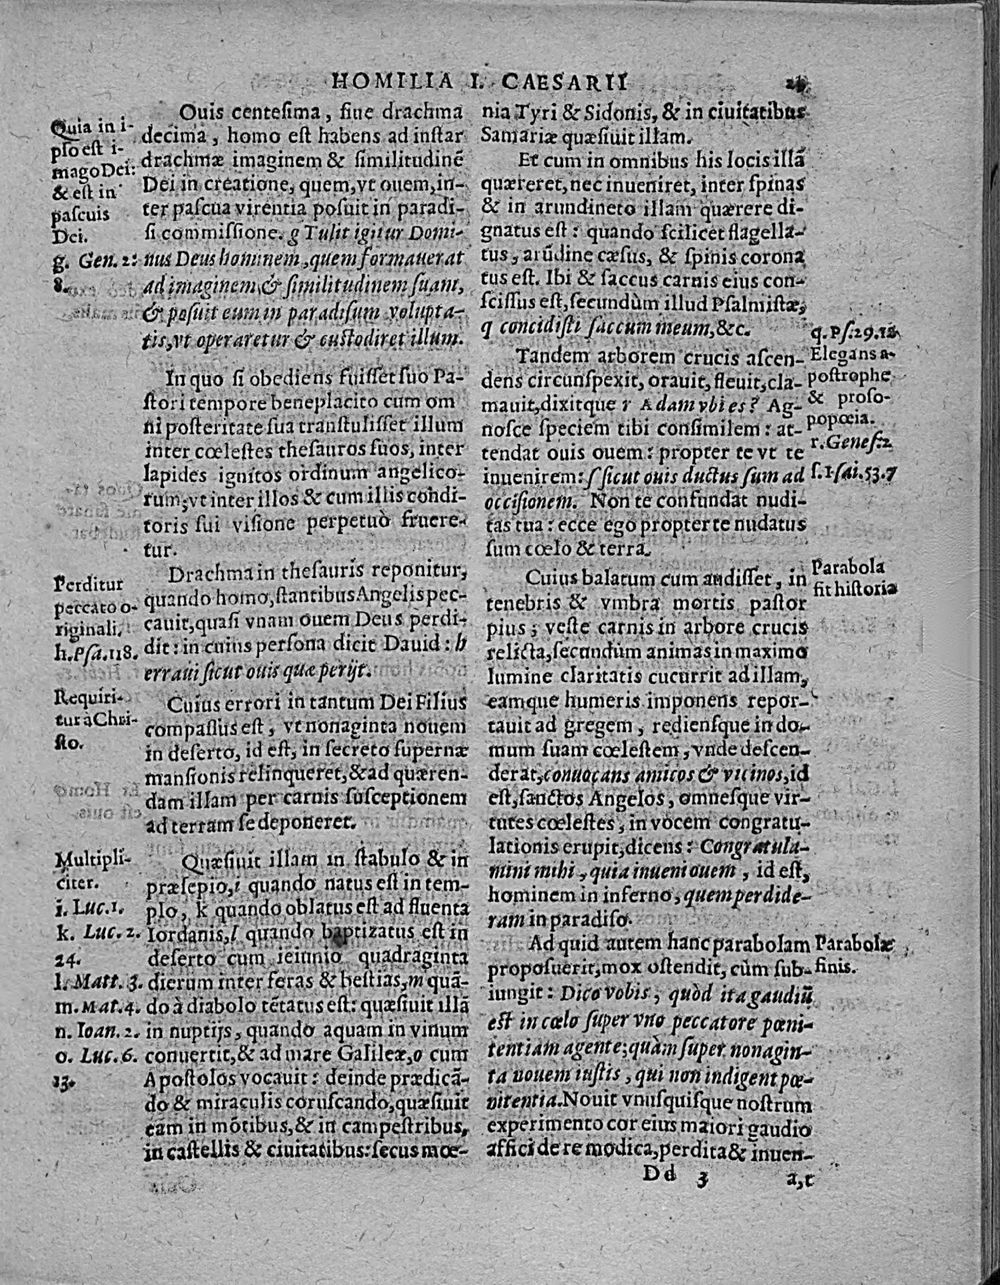 HOMILIA I. CAESARII
Quia in i-
pso est i-
mago Dei:
& est in
pascuis
Dei.
g. Gen. 2:
8.
Perditur
peccato o-
riginali.
h. Psa. 118.
Requiri-
tur à Chri-
sto.
Multipli-
citer.
i. Luc. 1.
k. Luc. 2.
24.
l. Matt. 3.
m. Mat. 4.
n. Ioan. 2.
o. Luc. 6.
13.
Ouis centesima, siue drachma
decima, homo est habens ad instar
drachmæ imaginem & similitudinẽ
Dei in creatione, quem, vt ouem, in-
ter pascua virentia posuit in paradi-
si commissione. g Tulit igitur Domi-
nus Deus hominem, quem formauerat
ad imaginem & similitudinem suam,
& posuit eum in paradisum volupta-
tis, vt operaretur & custodiret illum.
In quo si obediens fuisset suo Pa-
stori tempore beneplacito cum om
ni posteritate sua transtulisset illum
inter cœlestes thesauros suos, inter
lapides ignitos ordinum angelico-
rum, vt inter illos & cum illis condi-
toris sui visione perpetuò fruere-
tur.
Drachma in thesauris reponitur,
quando homo, stantibus Angelis pec-
cauit, quasi vnam ouem Deus perdi-
dit: in cuius persona dicit Dauid: h
erraui sicut ouis quæ perijt.
Cuius errori in tantum Dei Filius
compassus est, vt nonaginta nouem
in deserto, id est, in secreto supernæ
mansionis relinqueret, & ad quæren-
dam illam per carnis susceptionem
ad terram se deponeret.
Quæsiuit illam in stabulo & in
præsepio, i quando natus est in tem-
plo, k quando oblatus est ad fluenta
Iordanis, l quando baptizatus est in
deserto cum ieiunio quadraginta
dierum inter feras & bestias, m quã-
do à diabolo tẽtatus est: quæsiuit illã
in nuptijs, quando aquam in vinum
conuertit, & ad mare Galileæ, o cum
Apostolos vocauit: deinde prædicã-
do & miraculis coruscando, quæsiuit
eam in mõtibus, & in campestribus,
in castellis & ciuitatibus: secus mœ-
nia Tyri & Sidonis, & in ciuitatibus
Samariæ quæsiuit illam.
Et cum in omnibus his locis illã
quæreret, nec inueniret, inter spinas
& in arundineto illam quærere di-
gnatus est: quando scilicet flagella-
tus, arũdine cæsus, & spinis corona
tus est. Ibi & saccus carnis eius con-
scissus est, secundùm illud Psalmistæ,
q concidisti saccum meum, &c.
Tandem arborem crucis ascen-
dens circunspexit, orauit, fleuit, cla-
mauit, dixitque r Adam vbi es? Ag-
nosce speciem tibi consimilem: at-
tendat ouis ouem: propter te vt te
inuenirem: s sicut ouis ductus sum ad
occisionem. Non te confundat nudi-
tas tua: ecce ego propter te nudatus
sum cœlo & terra.
Cuius balatum cum audisset, in
tenebris & vmbra mortis pastor
pius; veste carnis in arbore crucis
relicta, secundum animas in maximo
lumine claritatis cucurrit ad illam,
eamque humeris imponens repor-
tauit ad gregem, rediensque in do-
mum suam cœlestem, vnde descen-
derat, conuocans amicos & vicinos, id
est, sanctos Angelos, omnesque vir-
tutes cœlestes, in vocem congratu-
lationis erupit, dicens: Congratula-
mini mihi, quia inueni ouem, id est,
hominem in inferno, quem perdide-
ram in paradiso.
Ad quid autem hanc parabolam
proposuerit, mox ostendit, cùm sub-
iungit: Dico vobis, quòd ita gaudiũ
est in cœlo super vno peccatore pœni-
tentiam agente; quàm super nonagin-
ta nouem iustis, qui non indigent pœ-
nitentia. Nouit vnusquisque nostrum
experimento cor eius maiori gaudio
affici de re modica, perdita & inuen-
q. Ps. 29. 12
Elegans a-
postrophe
& proso-
popœia.
r. Genes. 2
s. Isai. 53. 7
Parabola
fit historia
Parabolæ
finis.
Dd 3
a, t